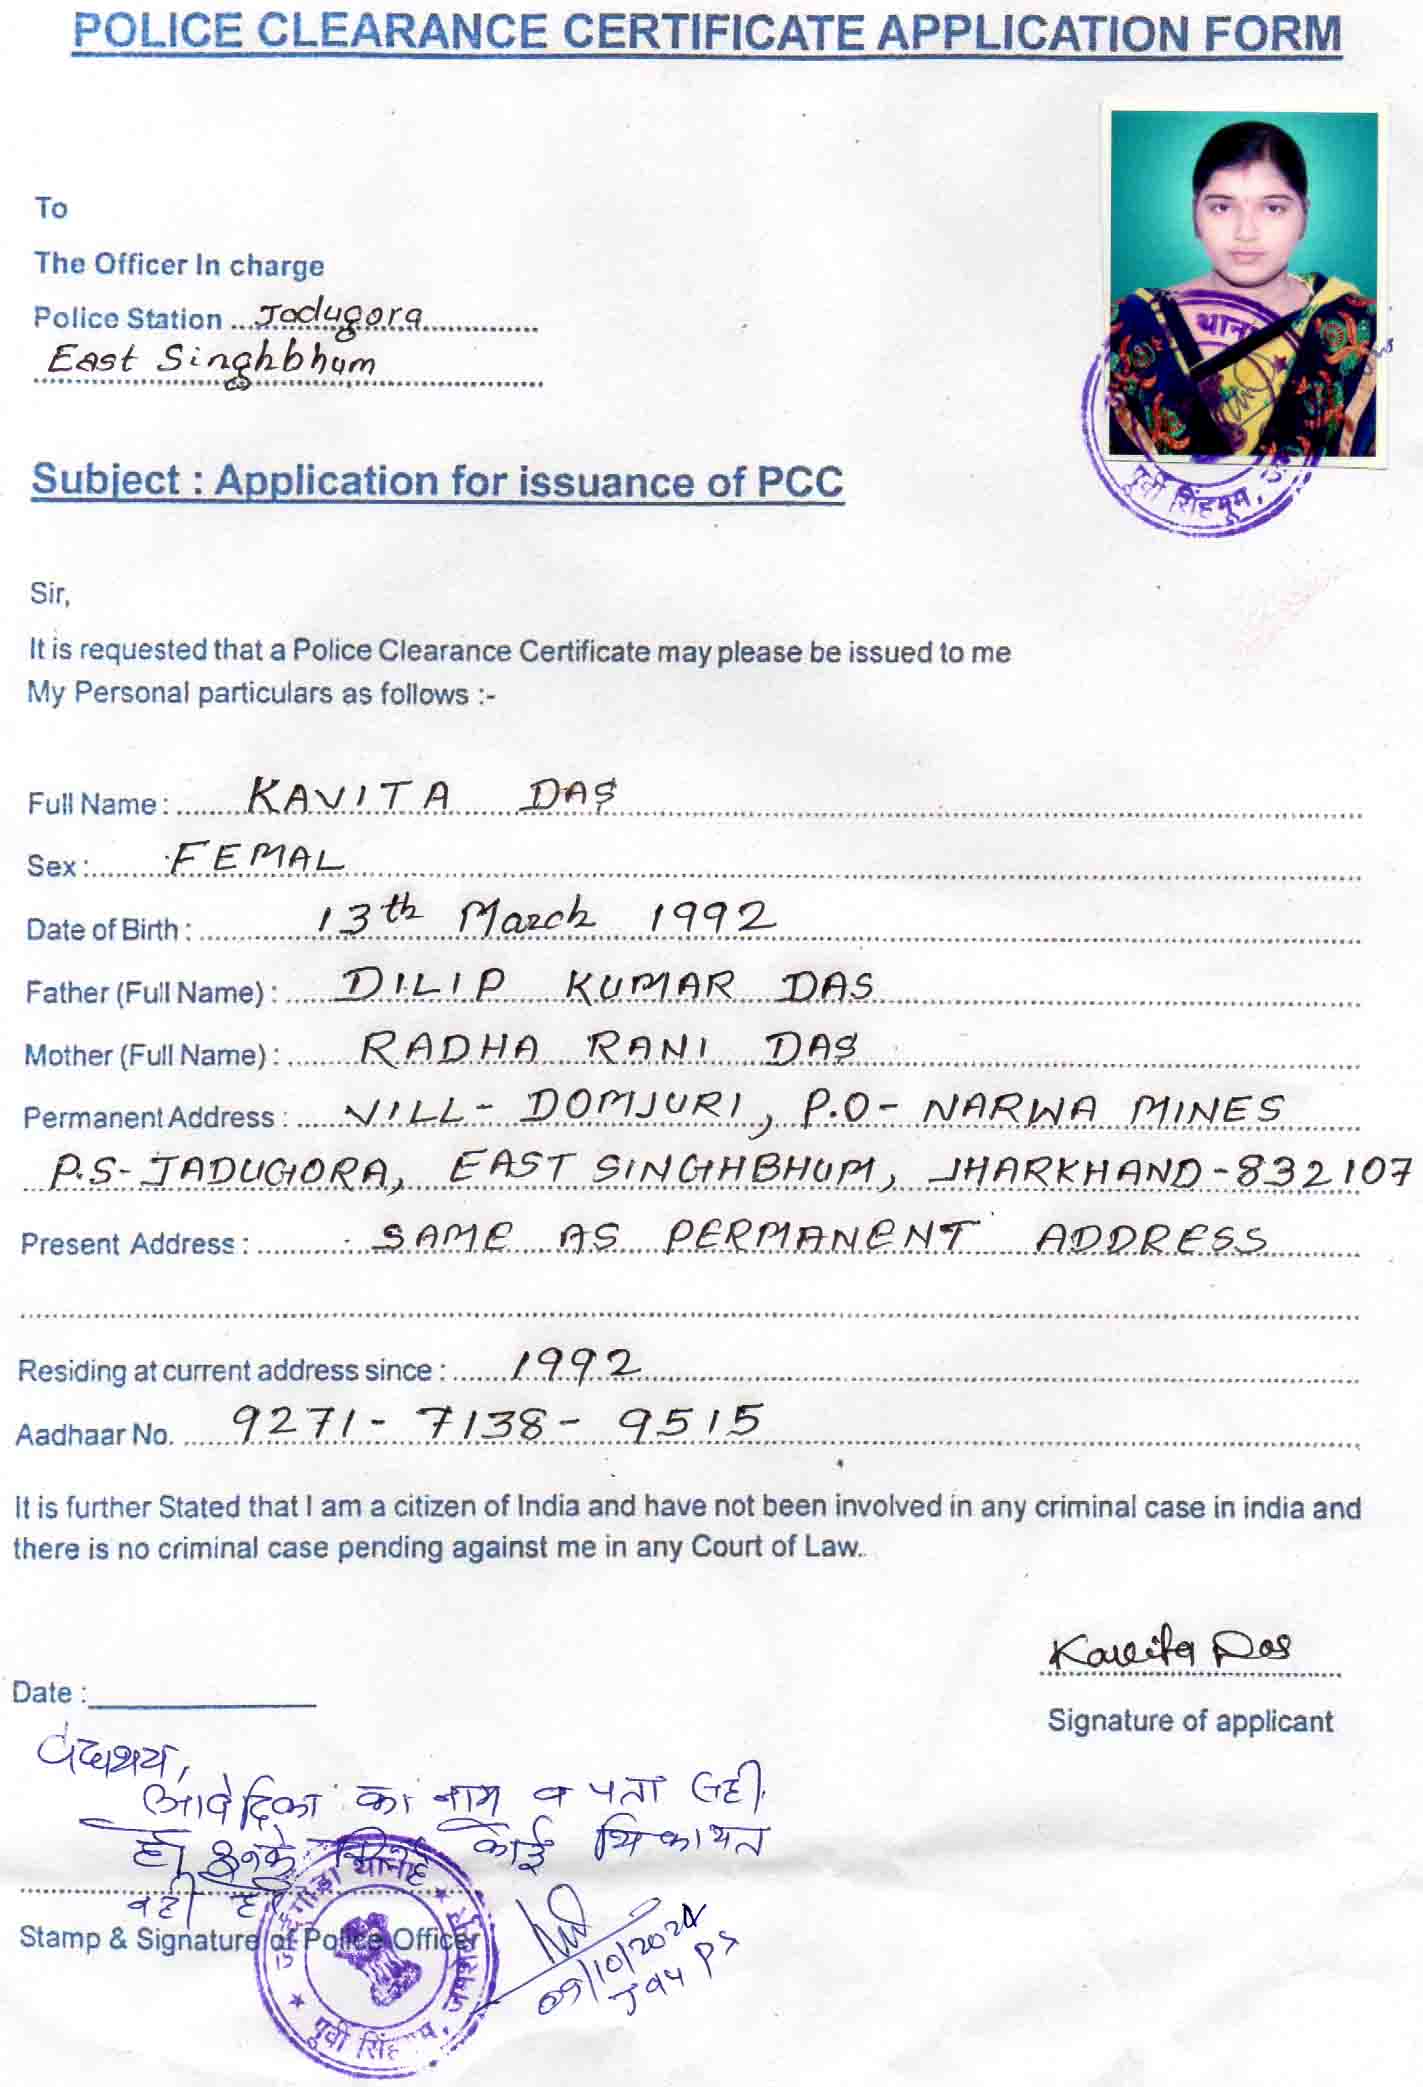 POLICE CLEARANCE CERTIFICATE APPLICATION FORM
To
The Officer In charge
Police Station ... Jadugora
East Singhbhum
थाना
पूर्वी सिंहभूम,
Subject : Application for issuance of PCC
Sir,
It is requested that a Police Clearance Certificate may please be issued to me
My Personal particulars as follows :-
Full Name : KAVITA DAS
Sex : FEMAL
Date of Birth : 13th March 1992
Father (Full Name) : DILIP KUMAR DAS
Mother (Full Name) : RADHA RANI DAS
Permanent Address : VILL- DOMJURI, P.O- NARWA MINES
P.S- JADUGORA, EAST SINGHBHUM, JHARKHAND-832107
Present Address : SAME AS PERMANENT ADDRESS
Residing at current address since : 1992
Aadhaar No. 9271- 7138- 9515
It is further Stated that I am a citizen of India and have not been involved in any criminal case in india and
there is no criminal case pending against me in any Court of Law..
Kavita Das
Date :
Signature of applicant
आवेदिका का नाम व पता सही
है। उनके विरुद्ध कोई शिकायत
नहीं है
Stamp & Signature of Police Officer
09/10/2024
पूर्वी सिंहभूम,